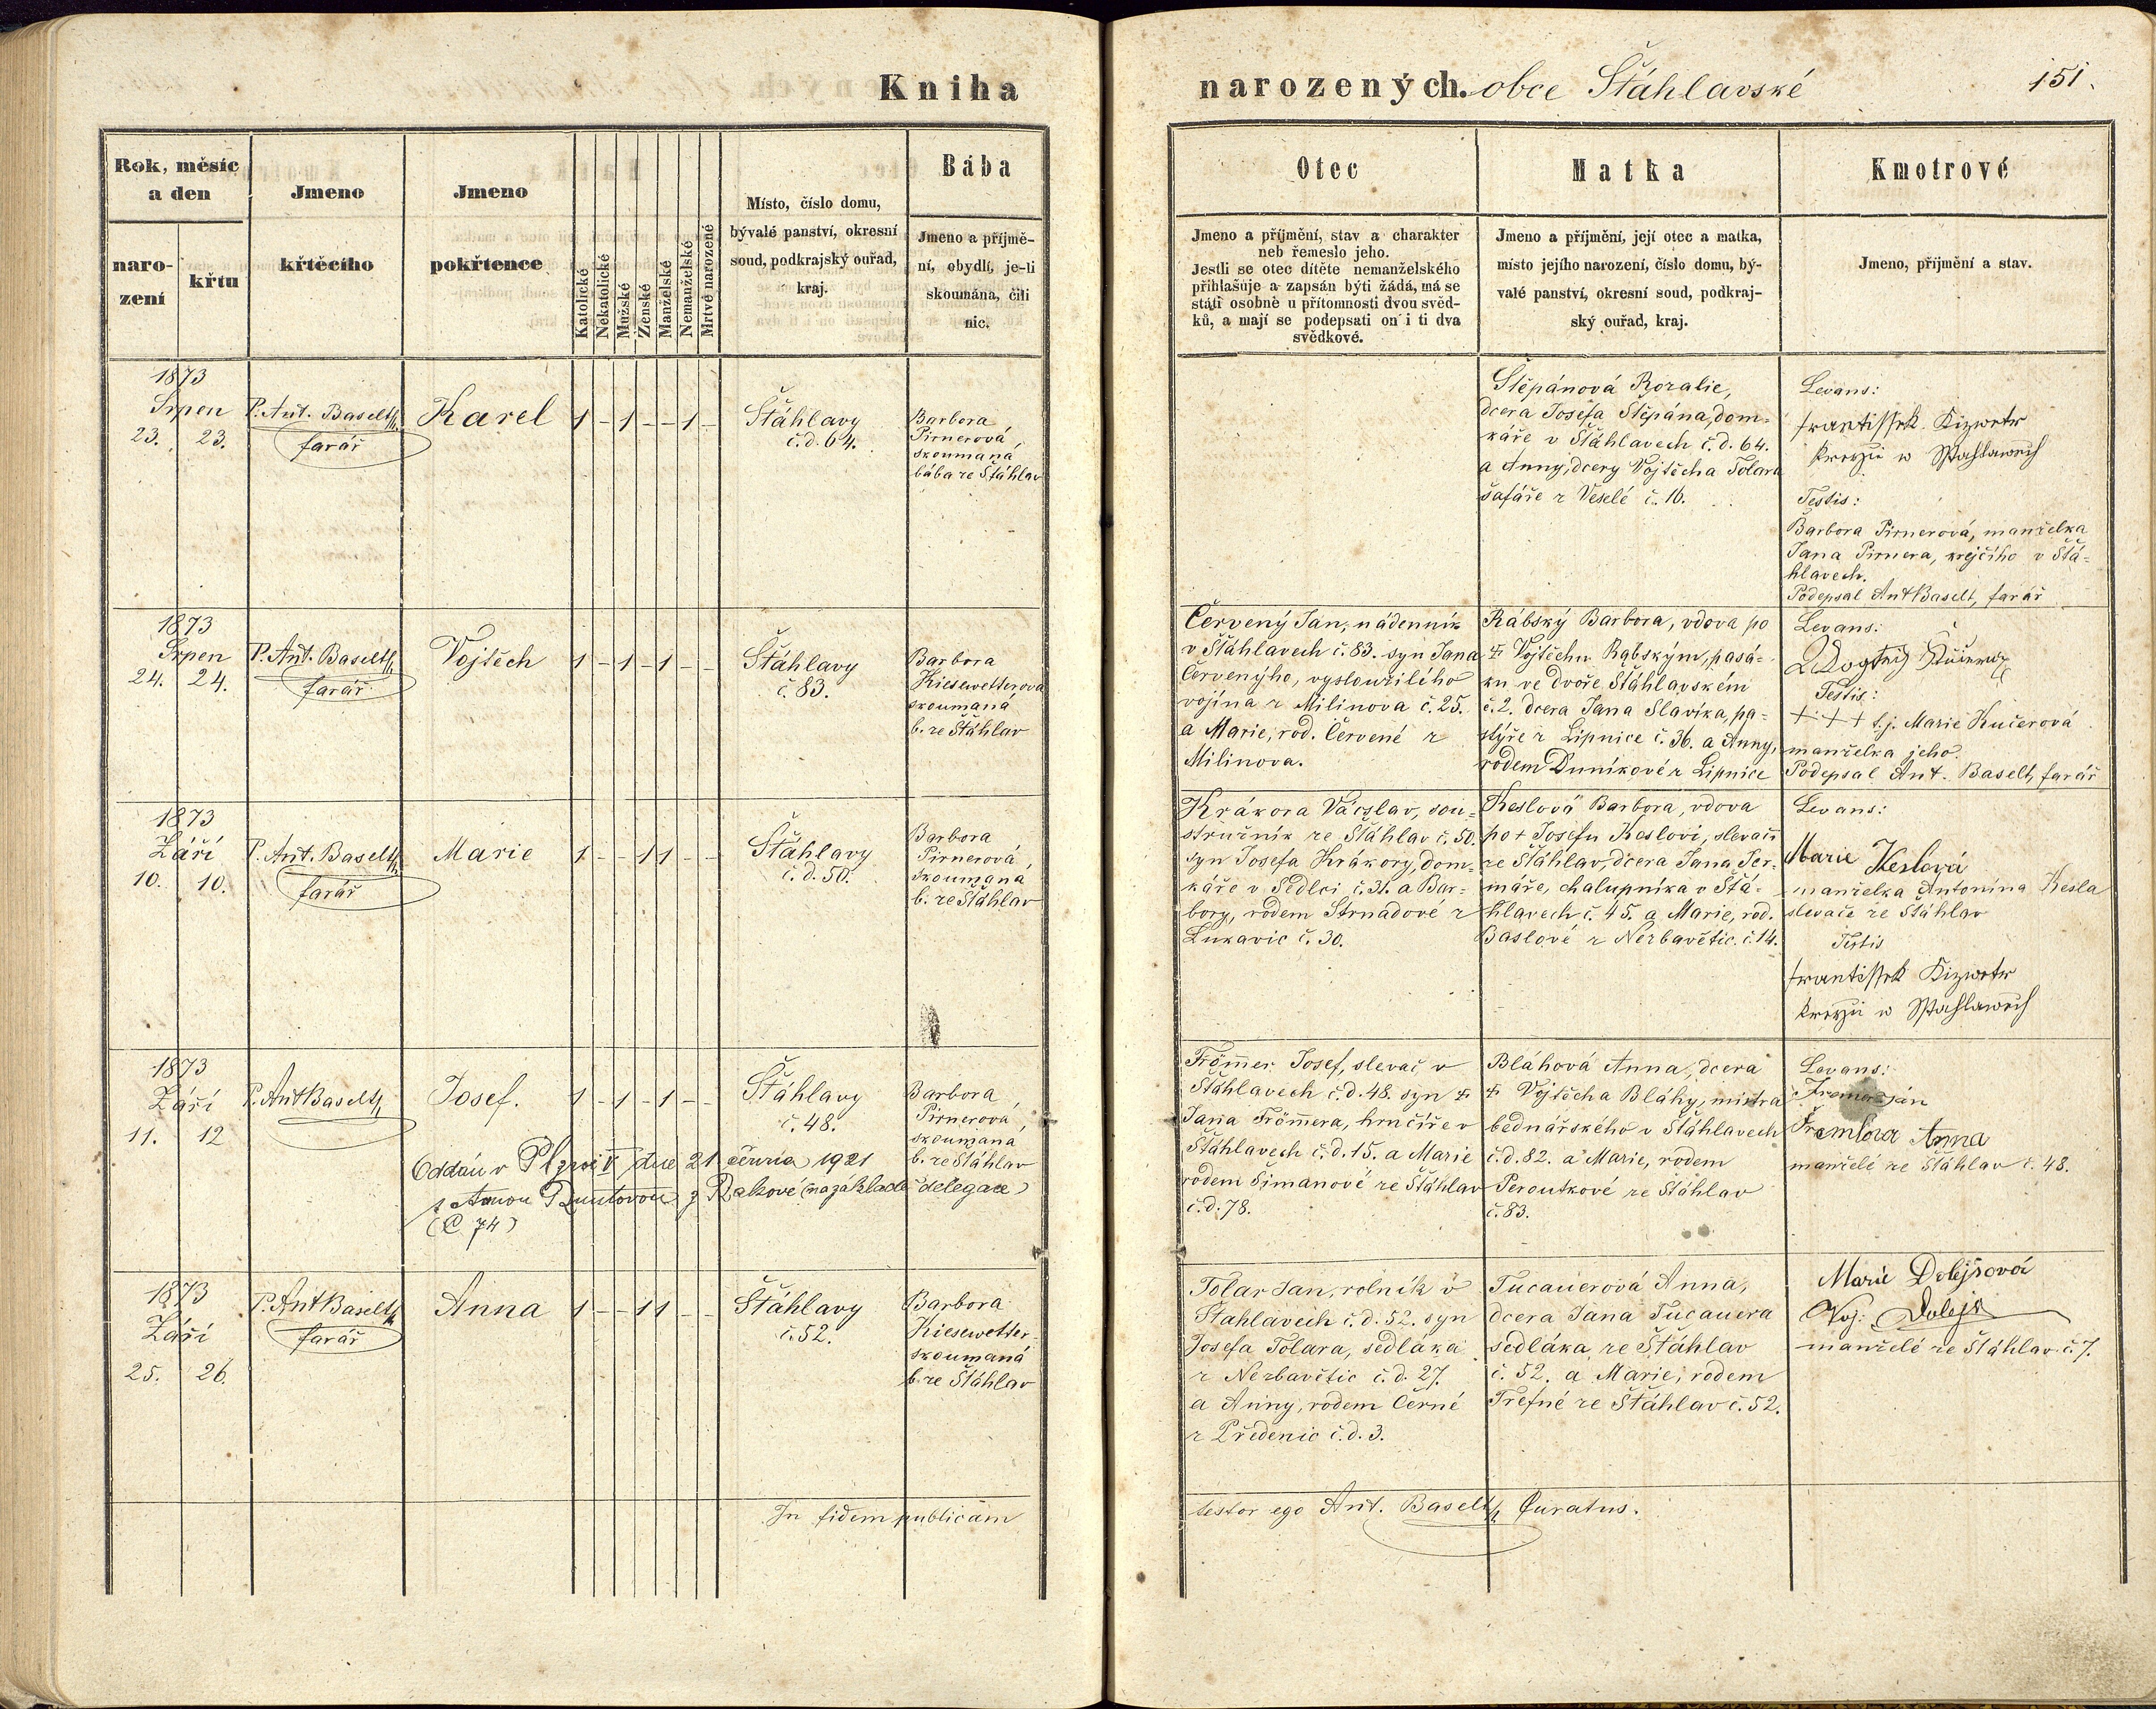 Kniha
narozených. obce Šťáhlavské
151.
Rok, měsíc
a den
naro-
zení
křtu
Jmeno
křtěcího
Jmeno
pokřtence
Katolické
Nekatolické
Mužské
Ženské
Manželské
Nemanželské
Mrtvě narozené
Místo, číslo domu,
bývalé panství, okresní
soud, podkrajský ouřad,
kraj.
Bába
Jmeno a příjmě-
ní, obydlí, je-li
skoumána, čili
nic.
Otec
Jmeno a příjmění, stav a charakter
neb řemeslo jeho.
Jestli se otec dítěte nemanželského
přihlašuje a zapsán býti žádá, má se
státi osobně u přítomnosti dvou svěd-
ků, a mají se podepsati on i ti dva
svědkové.
Matka
Jmeno a příjmění, její otec a matka,
místo jejího narození, číslo domu, bý-
valé panství, okresní soud, podkraj-
ský ouřad, kraj.
Kmotrové
Jmeno, příjmění a stav.
1873
Srpen
23. 23.
P. Ant. Baselt
farář
Karel
1 – 1 – – 1 –
Šťáhlavy
č. d. 64.
Barbora
Pirnerová,
skoumaná
bába ze Šťáhlav
Štěpánová Rozalie,
dcera Josefa Štěpána, dom-
káře v Šťáhlavech č. d. 64.
a Anny, dcery Vojtěcha Tolara
šafáře z Veselé č. 16.
Levans:
Frantissek Kizwetr
kregzii w Sstahlawech
Testis:
Barbora Pirnerová, manželka
Jana Pirnera, krejčího v Šťá-
hlavech.
Podepsal Ant Baselt, farář
1873
Srpen
24. 24.
P. Ant. Baselt
farář
Vojtěch
1 – 1 – 1 – –
Šťáhlavy
č. 83.
Barbora
Kiesewetterova
skoumaná
b. ze Šťáhlav
Červený Jan, nádenník
v Šťáhlavech č. 83. syn Jana
Červenýho, vysloužilého
vojína z Milinova č. 25.
a Marie, rod. Červené z
Milinova.
Rábský Barbora, vdova po
‡ Vojtěchu Rábským, pasá-
ku ve dvoře Šťáhlavském
č. 2. dcera Jana Slavíka, pa-
stýře z Lipnice č. 36. a Anny,
rodem Duníkové z Lipnice
Levans:
Testis:
+ + + t. j. Marie Kučerová
manželka jeho.
Podepsal Ant. Baselt, farář
1873
Září
10. 10.
P. Ant. Baselt
farář
Marie
1 – – 1 1 – –
Šťáhlavy
č. d. 50.
Barbora
Pirnerová,
skoumaná
b. ze Šťáhlav
Krákora Václav, sou-
stružník ze Šťáhlav č. 50.
syn Josefa Krákory, dom-
káře v Sedlci č. 31. a Bar-
bory, rodem Strnadové z
Lukavic č. 30.
Keslová Barbora, vdova
po + Josefu Keslovi, slevači
ze Šťáhlav, dcera Jana Jer-
máře, chalupníka v Šťá-
hlavech č. 45. a Marie, rod.
Baslové z Nezbavětic. č. 14.
Levans:
Marie Keslová
manželka Antonína Kesla
slevače ze Šťáhlav
Testis
Frantissek Kizwetr
kregzii w Sstahlawech
1873
Září
11. 12
P. Ant Baselt
Josef.
1 – 1 – 1 – –
Šťáhlavy
č. 48.
Barbora
Pirnerová,
skoumaná
b. ze Šťáhlav
Oddán v Plzni dne 21 1921
s Annou z Rakové (na základě delegace)
(Č 74)
Frömmer Josef, slevač v
Šťáhlavech č. d. 48. syn ‡
Jana Frömmera, hrnčíře v
Šťáhlavech č. d. 15. a Marie
rodem Šimanové ze Šťáhlav
č. d. 78.
Bláhová Anna, dcera
‡ Vojtěcha Bláhy, mistra
bednářského v Šťáhlavech
č. d. 82. a Marie, rodem
Peroutkové ze Šťáhlav
č. 83.
Levans:
Anna
manželé ze Šťáhlav č. 48.
1873
Září
25. 26
P. Ant Baselt
farář
Anna
1 – – 1 1 – –
Šťáhlavy
č. 52.
Barbora
Kiesewetter
skoumaná
b. ze Šťáhlav
Tolar Jan, rolník v
Šťahlavech č. d. 52. syn
Josefa Tolara, sedláka
z Nezbavětic č. d. 27.
a Anny, rodem Černé
z Předenic č. d. 3.
Tucauerová Anna,
dcera Jana Tucauera
sedláka ze Šťáhlav
č. 52. a Marie, rodem
Trefné ze Šťáhlav č. 52.
Marie Dolejšová
Voj. Dolejš
manželé ze Šťáhlav č. 7.
In fidem publicam
testor ego Ant. Baselt, Curatus.